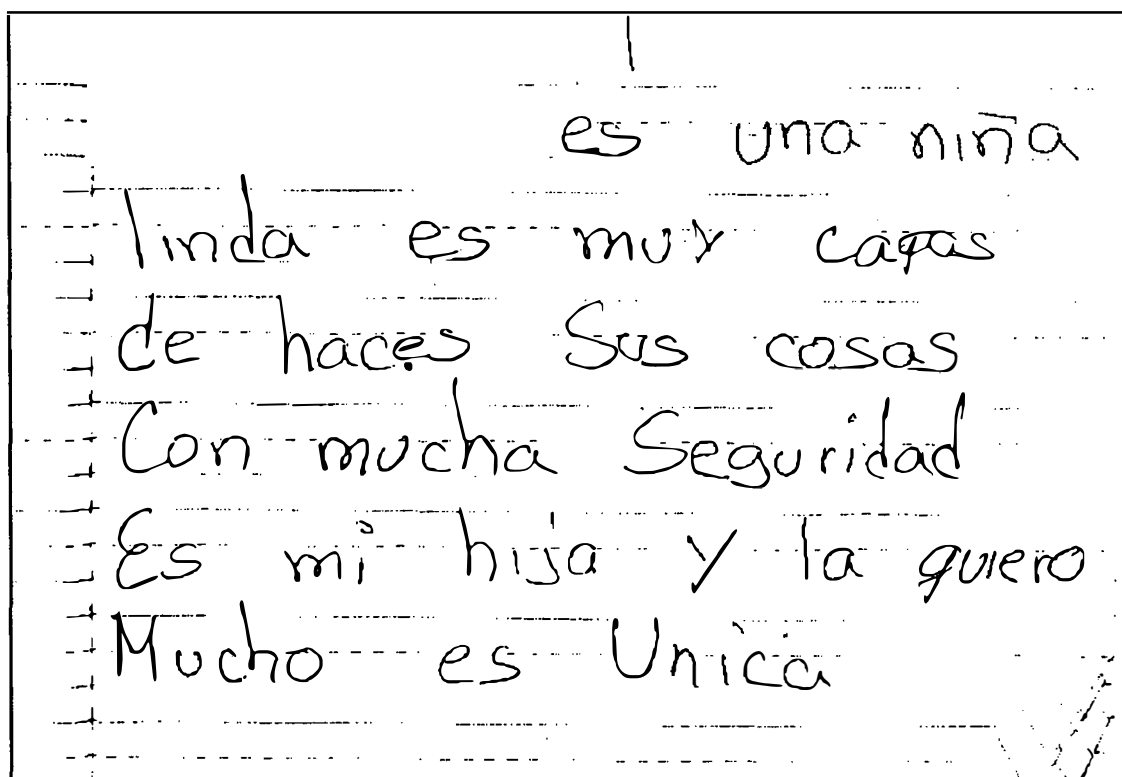 es una niña
linda es muy capas
de haces Sus cosas
Con mucha Seguridad
Es mi hija y la quiero
Mucho es Unica